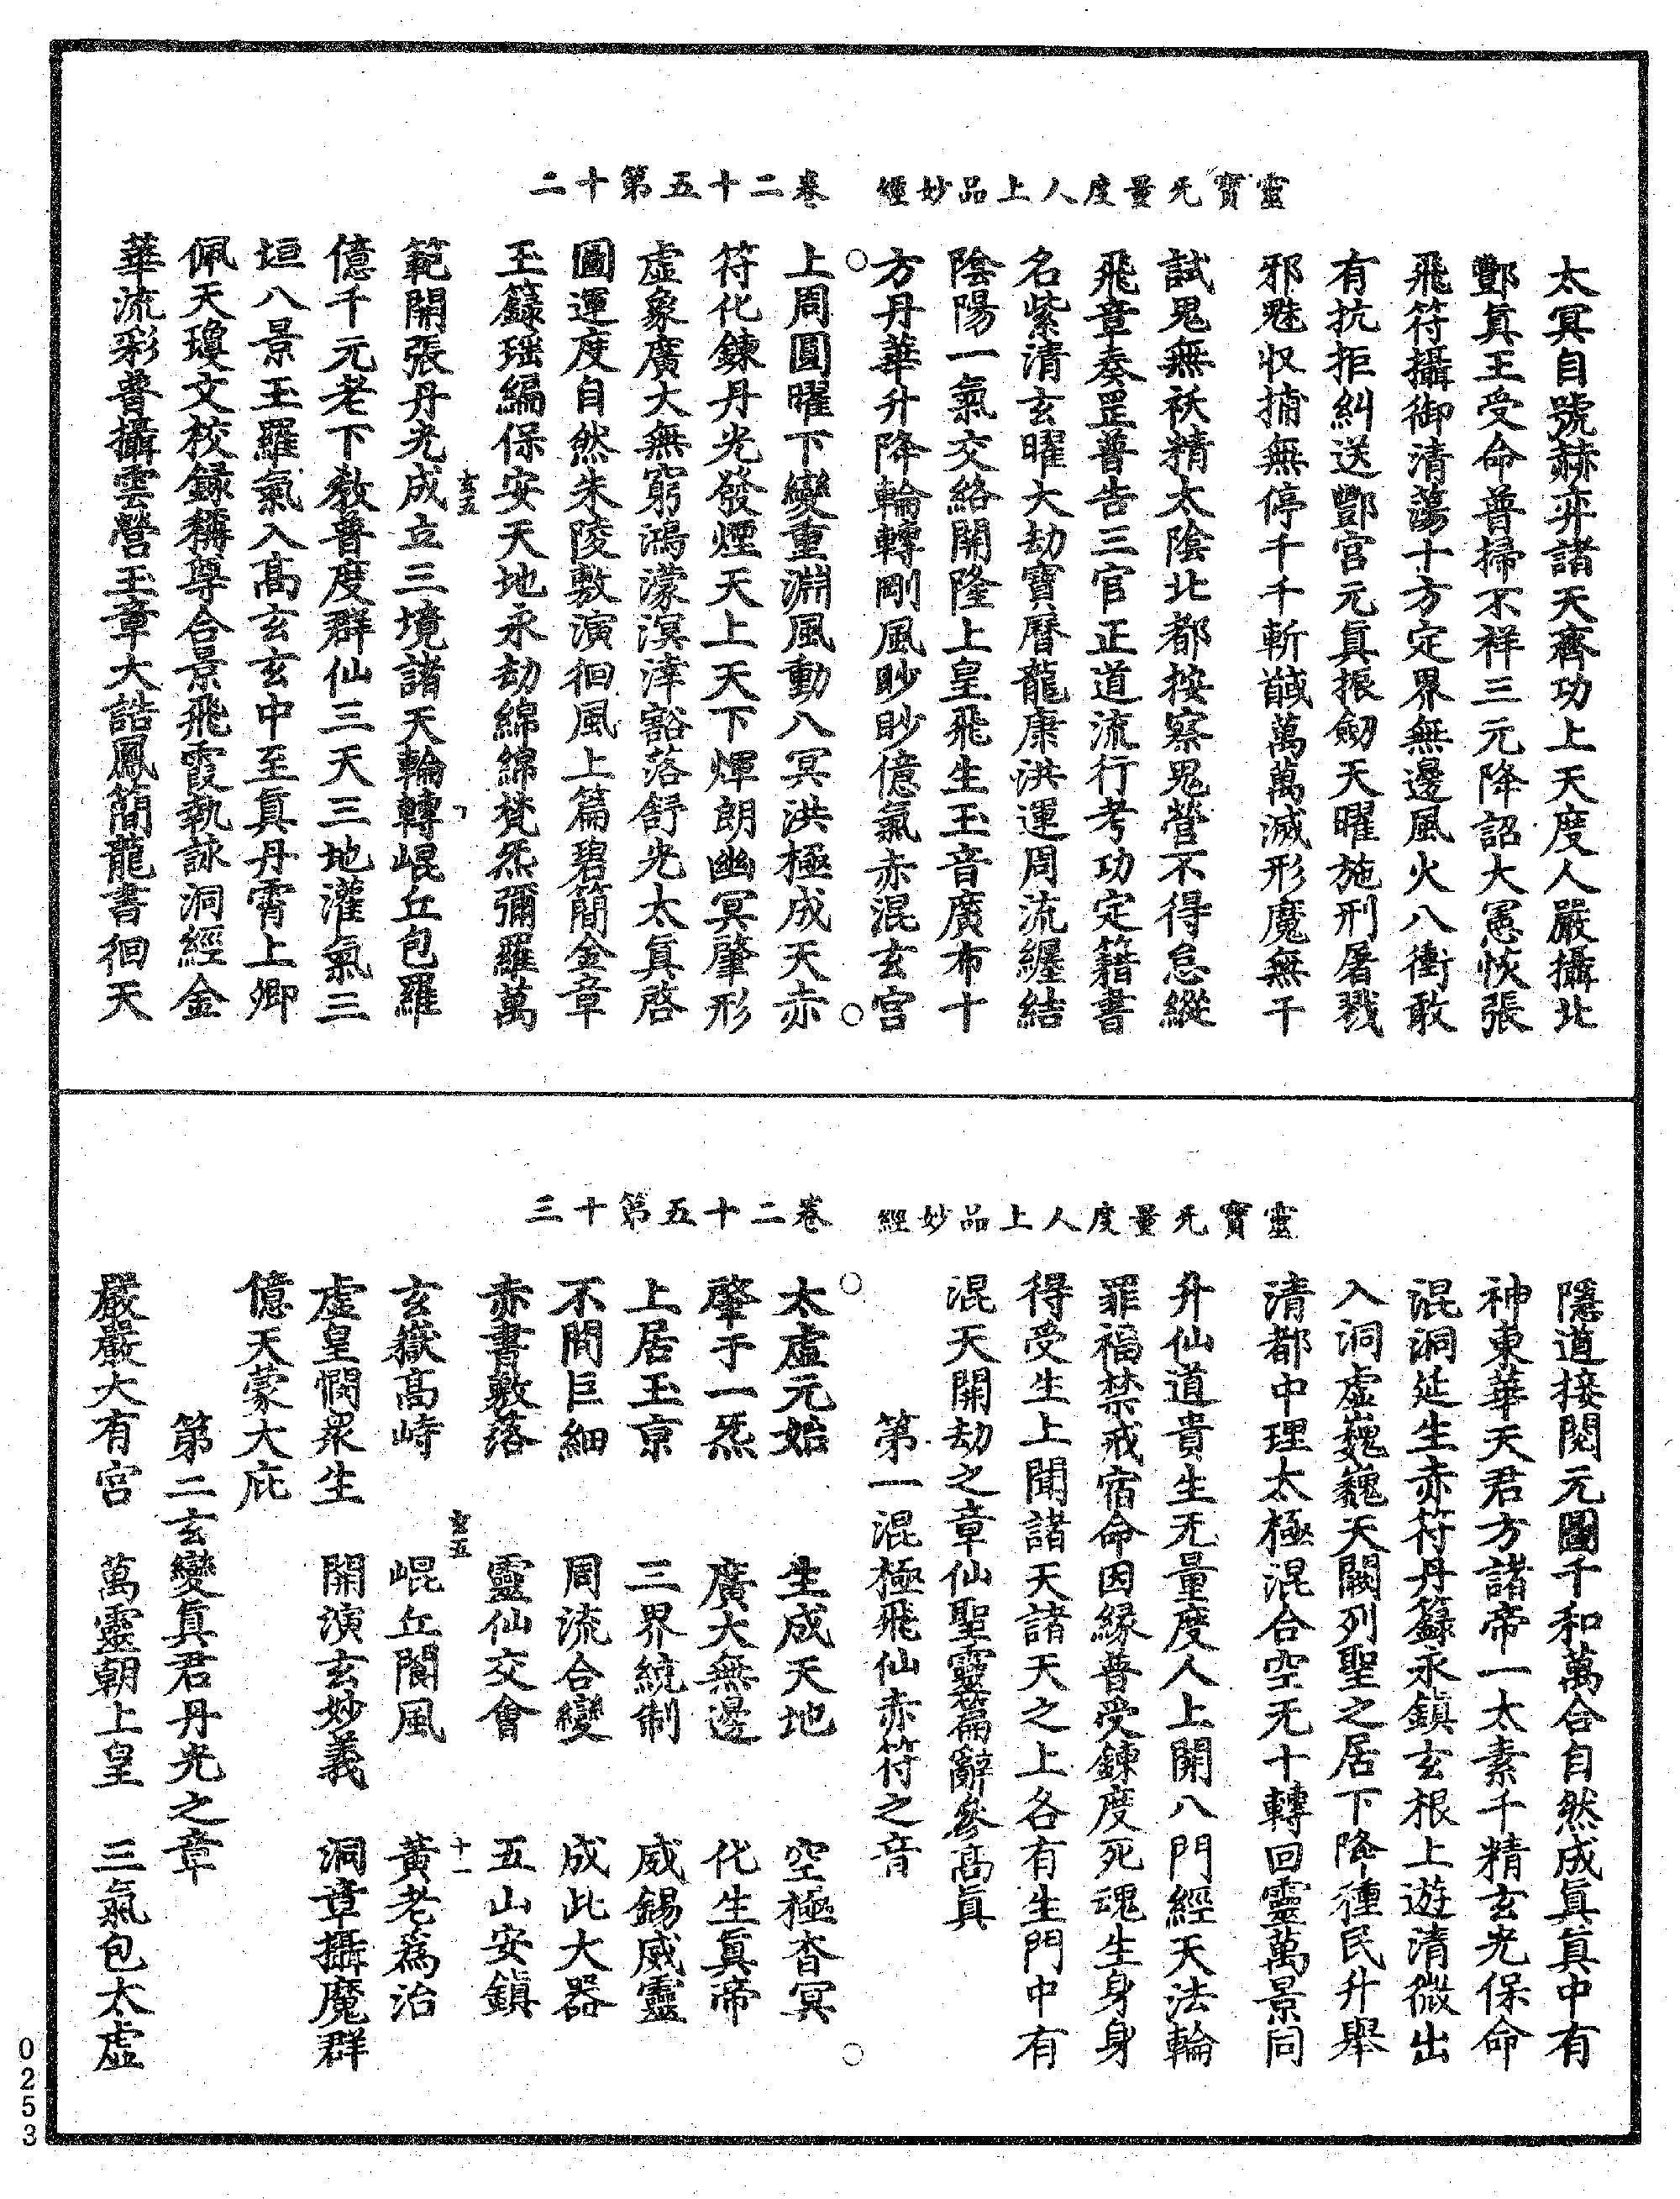 靈寶无量度人上品妙經　卷二十五第十二
太冥自號赫弈諸天齊功上天度人嚴攝北
酆眞王受命普掃不祥三元降詔大憲恢張
飛符攝御清蕩十方定界無邊風火八衝敢
有抗拒糾送酆宮元眞振劒天曜施刑屠戮
邪魅収捕無停千千斬馘萬萬滅形魔無干
試鬼無祅精太陰北都按察鬼營不得怠縱
飛章奏罡普告三官正道流行考功定籍書
名紫清玄曜大劫寶曆龍康洪運周流纒結
陰陽一氣交絡開隆上皇飛生玉音廣布十
方丹華升降輪轉剛風眇眇億氣赤混玄宮
上周圓曜下變重淵風動八冥洪極成天赤
符化鍊丹光發煙天上天下煇朗幽冥肇形
虛象廣大無窮鴻濛溟涬豁落舒光太眞啓
圖運度自然朱陵敷演徊風上篇碧簡金章
玉籙瑶編保安天地永劫綿綿梵炁彌羅萬
範開張丹光成立三境諸天輪轉崐丘包羅
玄五
億千元老下教普度群仙三天三地灌氣三
垣八景玉羅氣入髙玄玄中至眞丹霄上卿
佩天瓊文校録稱尊合景飛霞執詠洞經金
華流彩普攝雲營玉章大誥鳳簡龍書徊天
靈寶无量度人上品妙經　卷二十五第十三
隱道接閱元圖千和萬合自然成眞眞中有
神東華天君方諸帝一太素千精玄光保命
混洞延生赤符丹籙永鎮玄根上遊清微出
入洞虛巍巍天闕列聖之居下降種民升舉
清都中理太極混合空无十轉回靈萬景同
升仙道貴生无量度人上開八門經天法輪
罪福禁戒宿命因緣普受鍊度死魂生身身
得受生上聞諸天諸天之上各有生門中有
混天開劫之章仙聖靈篇辭參髙眞
第一混極飛仙赤符之音
太虛元始　生成天地　空極杳冥
肇于一炁　廣大無邊　化生眞帝
上居玉京　三界統制　威錫威靈
不間巨細　周流合變　成此大器
赤書敷落　靈仙交會　五山安鎮
玄五　十一
玄嶽髙峙　崐丘閬風　黃老爲治
虛皇憫眾生　開演玄妙義　洞章攝魔群
億天蒙大庇
第二玄變眞君丹光之章
嚴嚴大有宮　萬靈朝上皇　三氣包太虛
0253